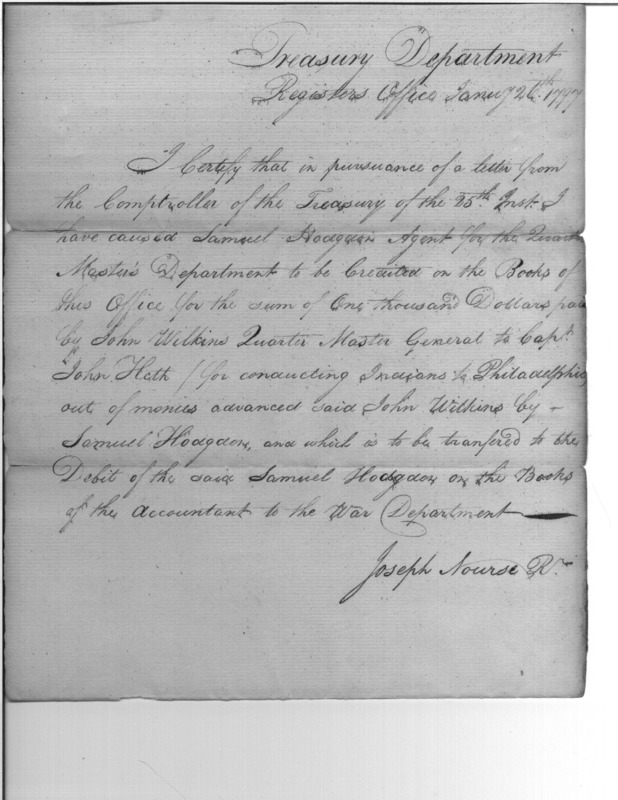 Treasury Department
Registers Office Janu'y 26th. 1797
I Certify that in pursuance of a letter from
the Comptroller of the Treasury of the 25th. Inst. I
have caused Samuel Hodgdon Agent for the Quarter
Master's Department to be Credited on the Books of
this Office for the sum of One thousand Dollars paid
by John Wilkins Quarter Master General to Capt.
John Heth / for conducting Indians to Philadelphia
out of monies advanced said John Wilkins by -
Samuel Hodgdon, and which is to be transfered to the
Debit of the said Samuel Hodgdon on the Books
of the accountant to the War Department
Joseph Nourse Rr.